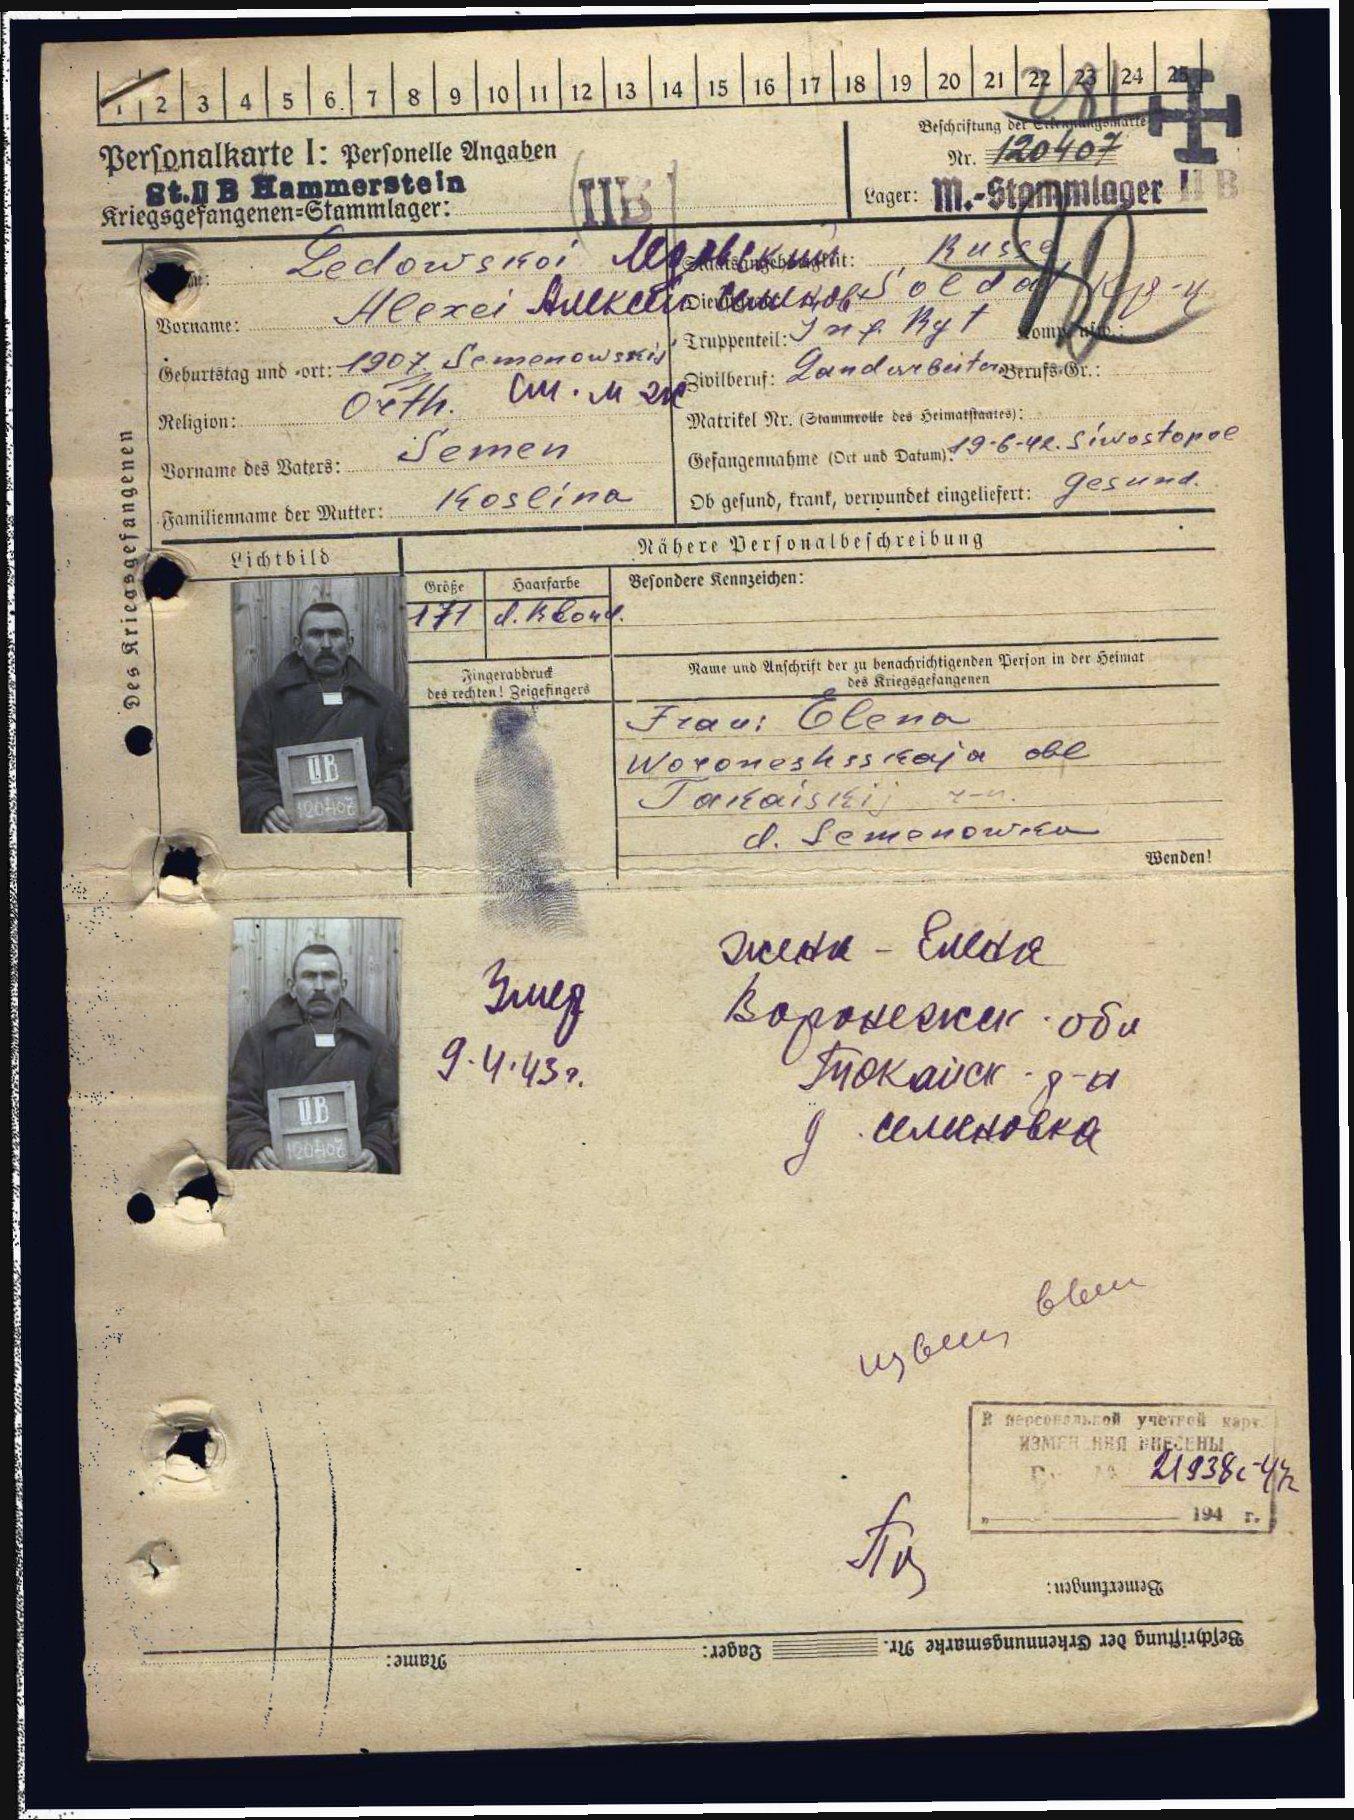 1 2 3 4 5 6 7 8 9 10 11 12 13 14 15 16 17 18 19 20 21 22 23 24 25
Personalkarte I: Personelle Angaben
Beschriftung der Erkennungsmarke
Nr. 120407
St. II B Hammerstein
Kriegsgefangenen-Stammlager: II B
Lager: M.-Stammlager II B
Des Kriegsgefangenen
Ledowskoi
Staatsangehörigkeit: Russe
Vorname: Alexei Алексей
Soldat
Truppenteil: Inf. Rgt Komp. usw.:
Geburtstag und -ort: 1907 Semenowskij
Zivilberuf: Landarbeiter Berufs-Gr.:
Religion: Orth.
Matrikel Nr. (Stammrolle des Heimatstaates):
Vorname des Vaters: Semen
Gefangennahme (Ort und Datum): 19-6-42. Siwostopol
Familienname der Mutter: Koslina
Ob gesund, krank, verwundet eingeliefert: gesund.
Lichtbild
Nähere Personalbeschreibung
Größe
Haarfarbe
Besondere Kennzeichen:
171
d. Blond.
Fingerabdruck
des rechten! Zeigefingers
Name und Anschrift der zu benachrichtigenden Person in der Heimat
des Kriegsgefangenen
II B
120407
Frau: Elena
Woroneshsskaja obl
Tokaiskij r-n.
d. Semenowka
Wenden!
жена - Елена
Воронежск. обл
Токайск. р-н
д. Семеновка
Умер
9.4.43 г.
II B
120407
извещ
В персональной учетной карт.
ИЗМЕНЕНИЯ ВНЕСЕНЫ
21938с-47г
194 г.
Bemerkungen:
Beschriftung der Erkennungsmarke Nr. Lager: Name: